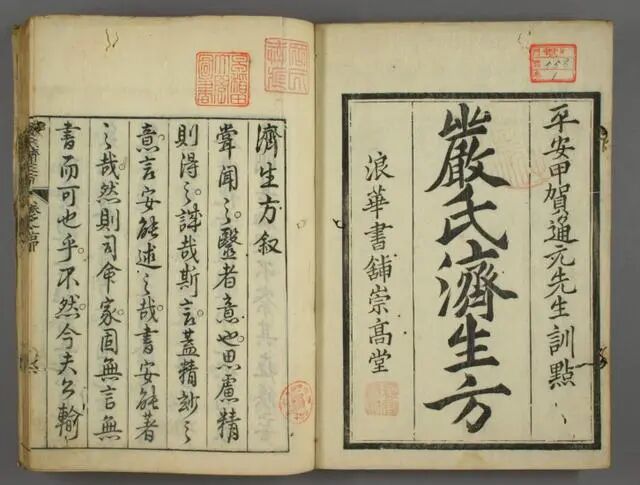 平安甲賀通元先生訓點
嚴氏濟生方
浪華書舗崇高堂
濟生方叙
甞聞之醫者意也思慮精
則得之誠哉斯言蓋精玅之
意言安能述之哉書安能著
之哉然則司命家固無言無
書而可也乎不然今夫公輸